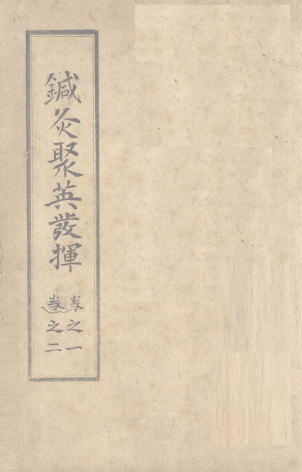 鍼灸聚英發揮
卷之一
卷之二